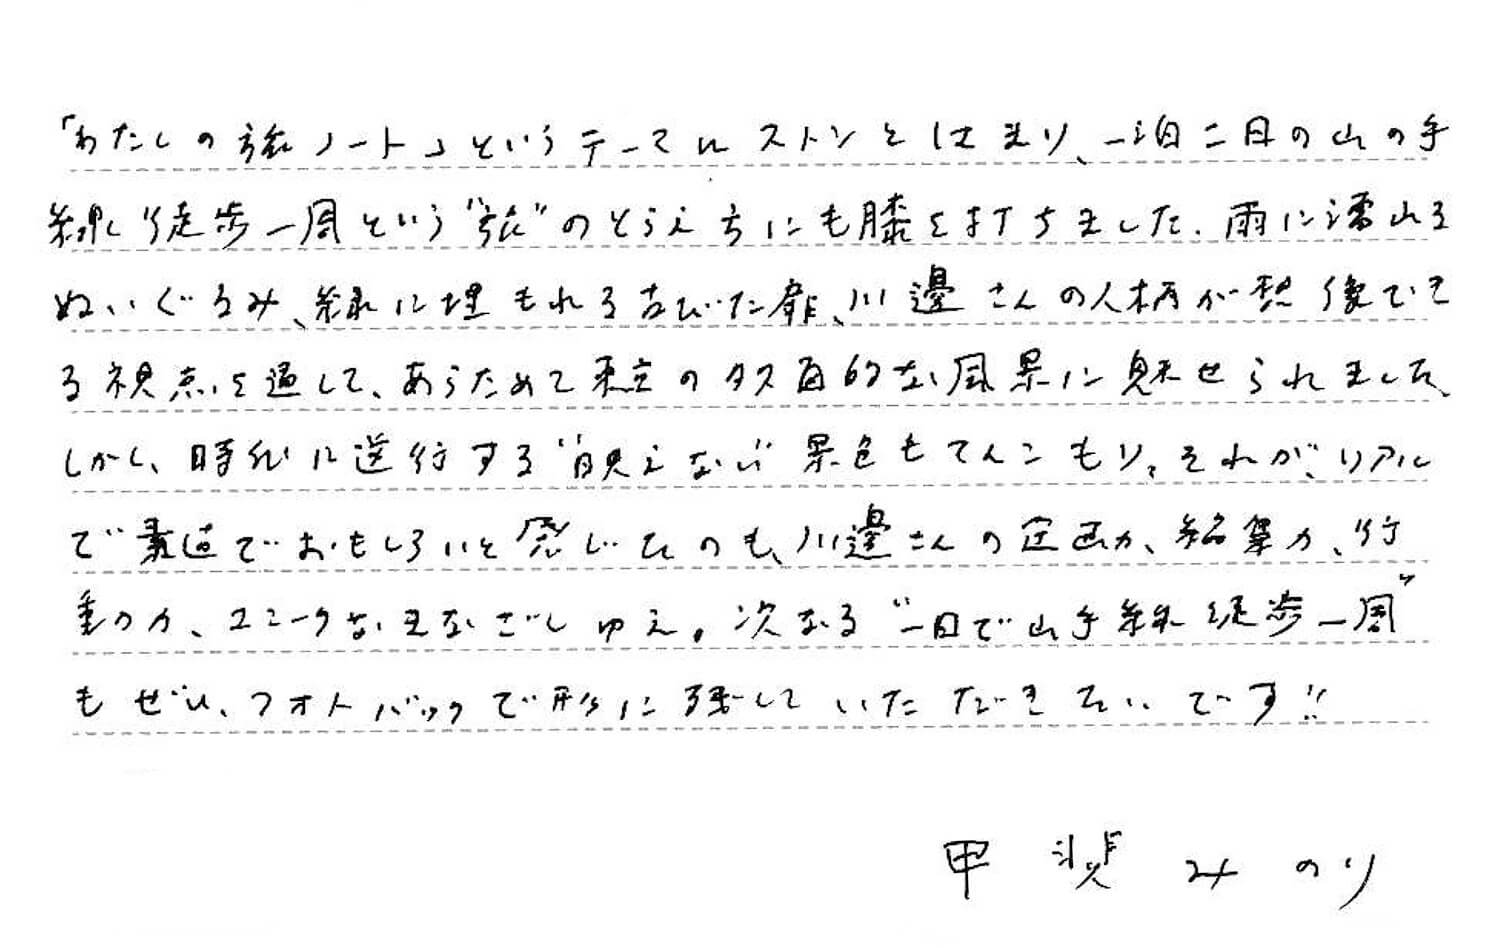 「わたしの旅ノート」というテーマにストンとはまり、一泊二日の山の手
線徒歩一周という"旅"のとらえ方にも膝を打ちました。雨に濡れる
ぬいぐるみ、緑に埋もれる古びた扉、川邊さんの人柄が想像でき
る視点を通して、あらためて東京の多面的な風景に魅せられました。
しかし、時代に逆行する"映えない"景色もてんこもり。それが、リアル
で素直でおもしろいと感じたのも、川邊さんの企画力、編集力、行
動力、ユニークなまなざしゆえ。次なる"一日で山手線徒歩一周"
もぜひ、フォトバックで形に残していただきたいです!!
甲斐みのり